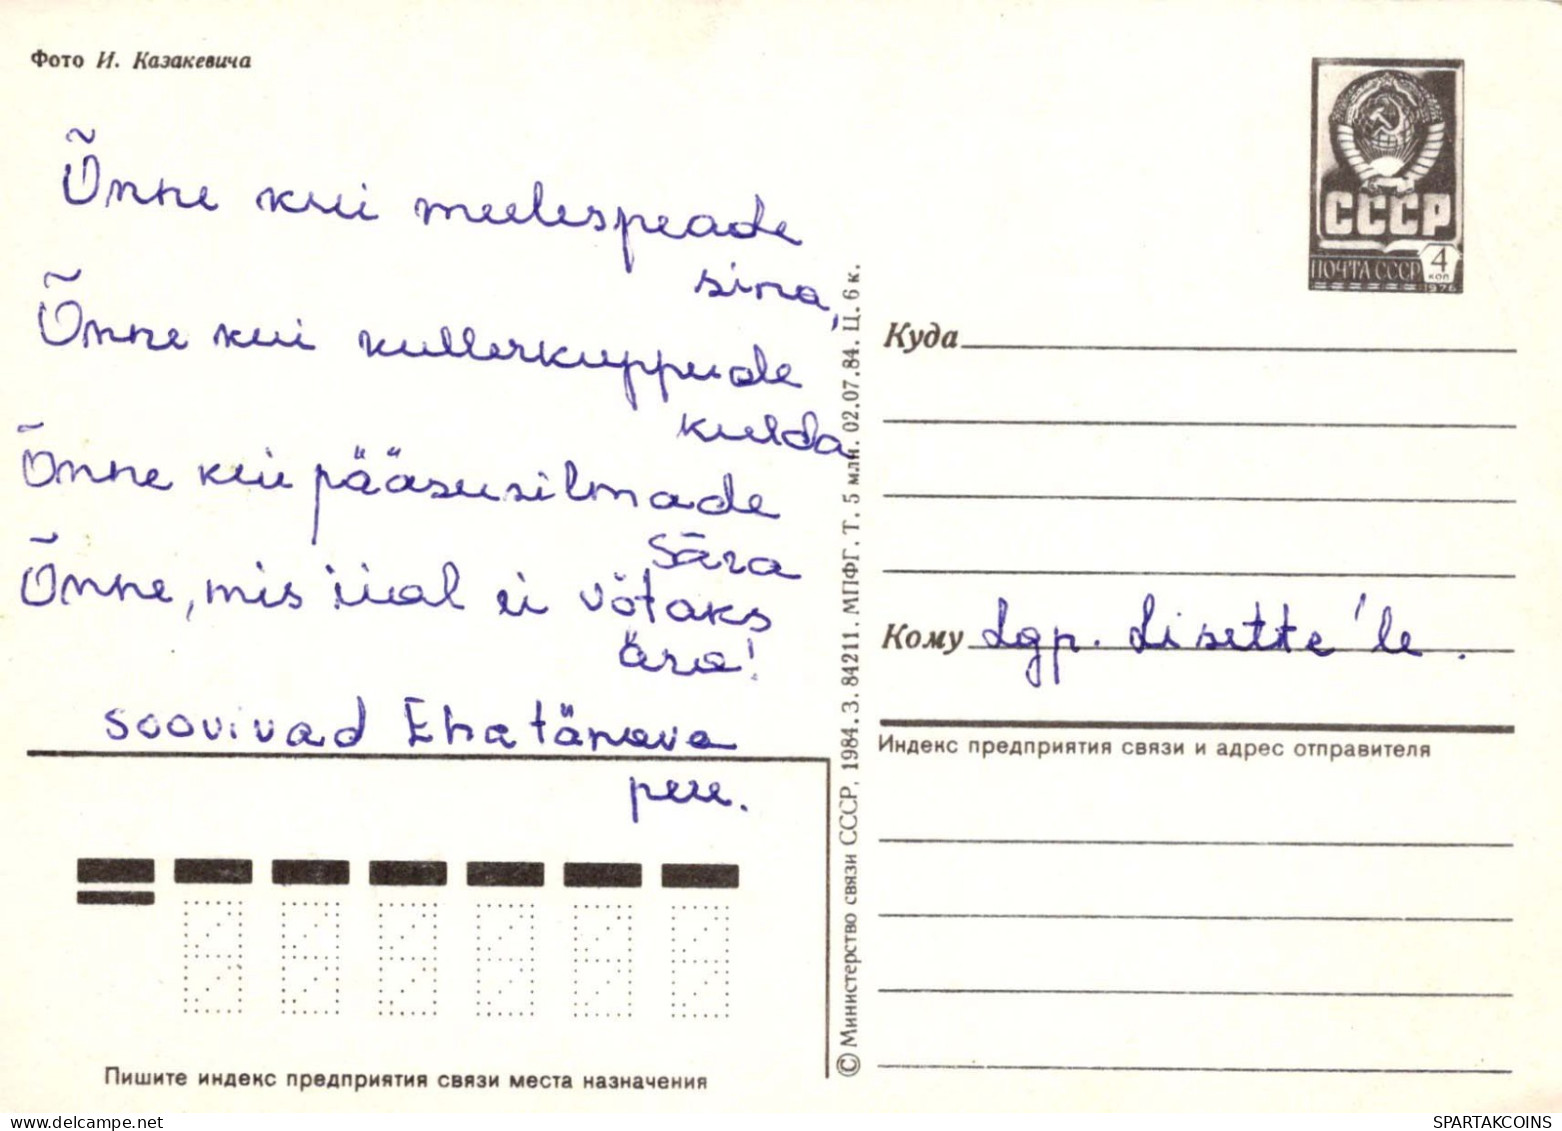 Фото И. Казакевича
Õnne kui meelespeade
sina,
Õnne kui kullerkuppude
kulda
Õnne kui pääsusilmade
sära
Õnne, mis iial ei võtaks
ära!
soovivad Ehatänava
pere.
Пишите индекс предприятия связи места назначения
© Министерство связи СССР, 1984. З. 84211. МПФГ. Т. 5 млн. 02.07.84. Ц. 6 к.
СССР
ПОЧТА СССР
4
коп
1976
Куда
Кому Lgp. Lisette'le.
Индекс предприятия связи и адрес отправителя
SPARTAKCOINS